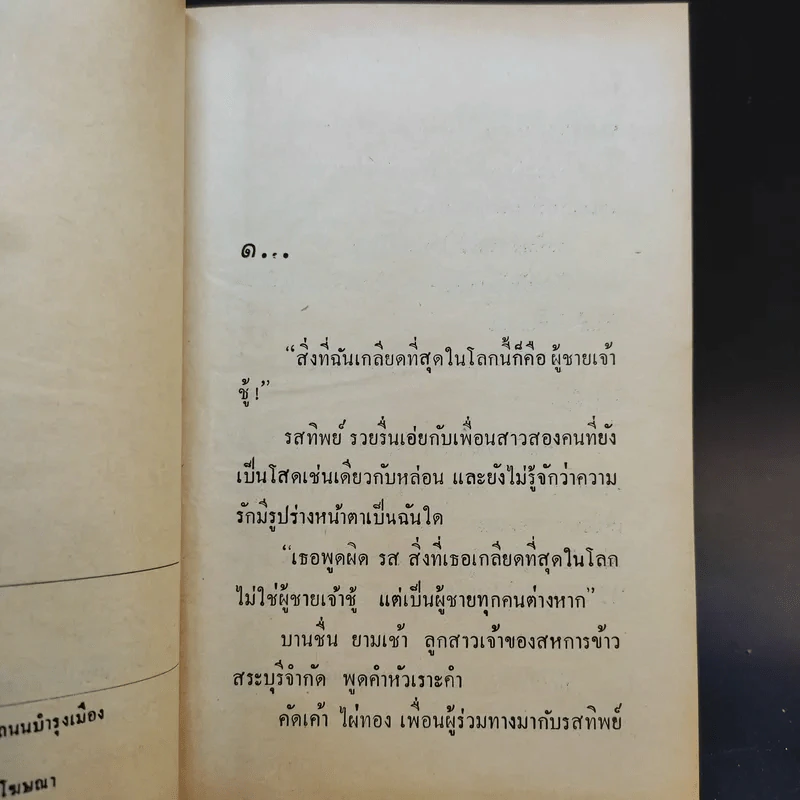 ๑...
“สิ่งที่ฉันเกลียดที่สุดในโลกนี้ก็คือ ผู้ชายเจ้า
ชู้ !”
รสทิพย์ รวยรื่นเอ่ยกับเพื่อนสาวสองคนที่ยัง
เป็นโสดเช่นเดียวกับหล่อน และยังไม่รู้จักว่าความ
รักมีรูปร่างหน้าตาเป็นฉันใด
“เธอพูดผิด รส สิ่งที่เธอเกลียดที่สุดในโลก
ไม่ใช่ผู้ชายเจ้าชู้ แต่เป็นผู้ชายทุกคนต่างหาก”
บานชื่น ยามเช้า ลูกสาวเจ้าของสหการข้าว
สระบุรีจำกัด พูดคำหัวเราะคำ
คัดเค้า ไผ่ทอง เพื่อนผู้ร่วมทางมากับรสทิพย์
ถนนบำรุงเมือง
โฆษณา